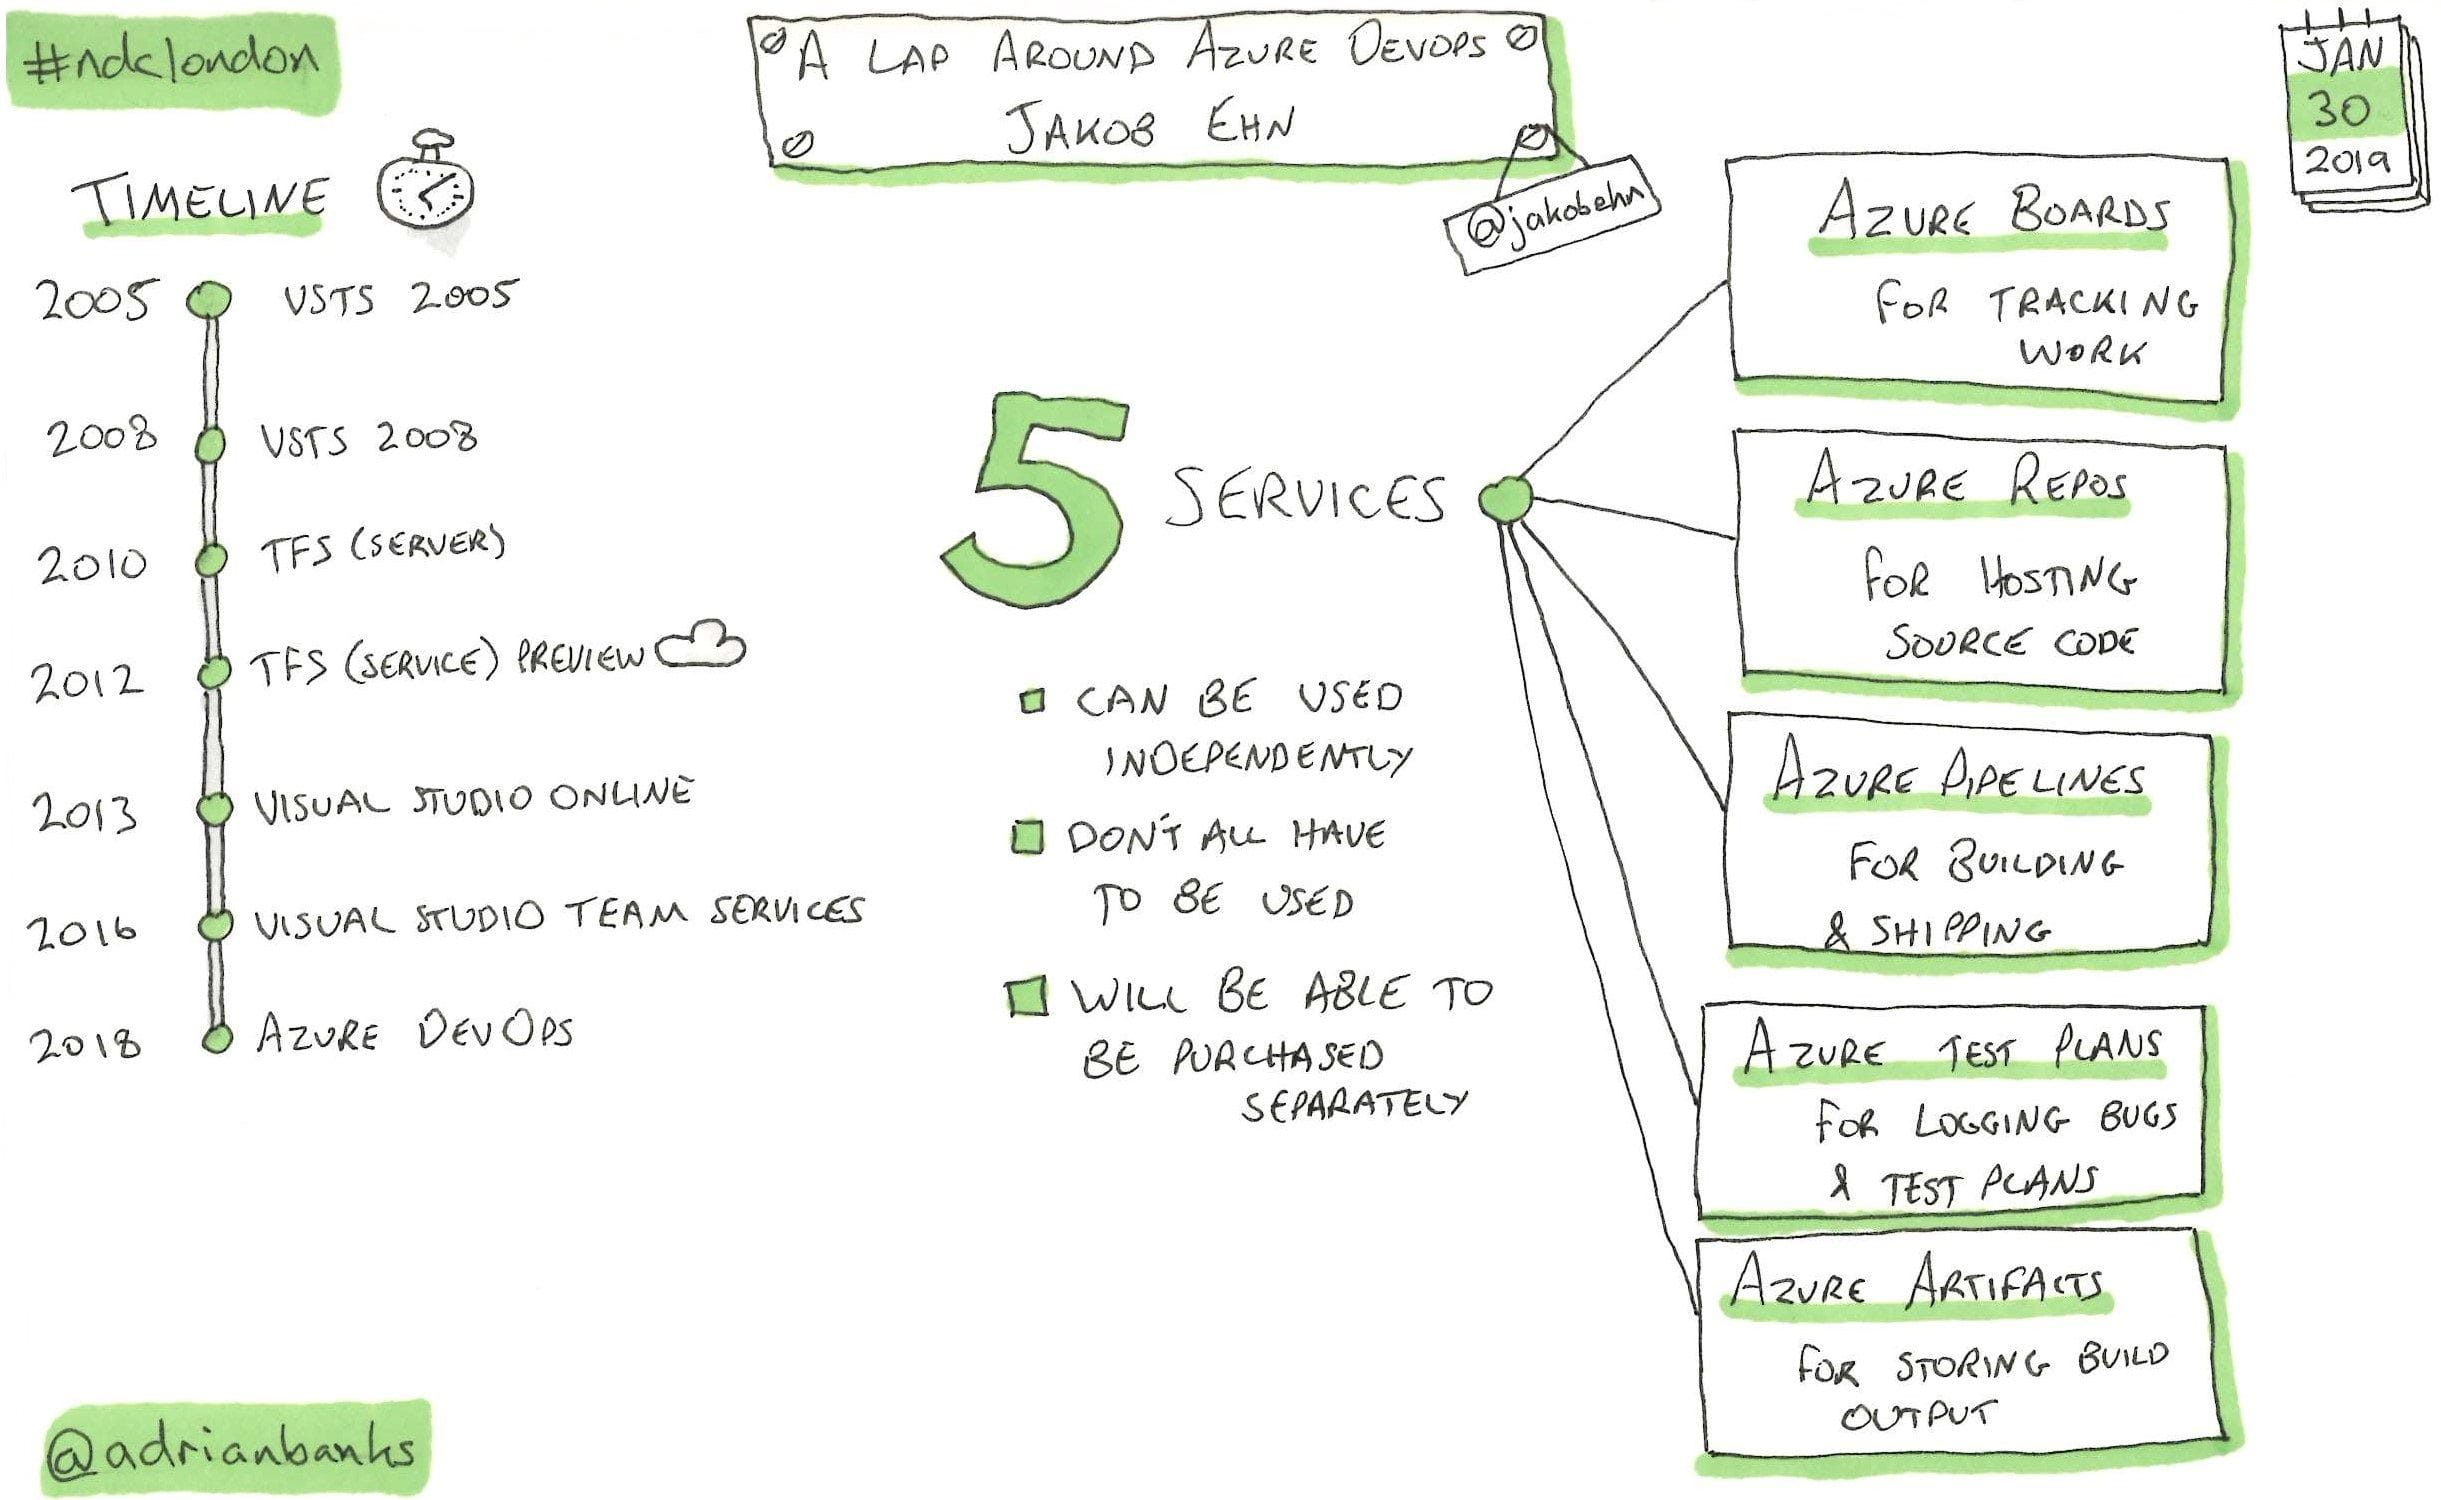 #ndclondon
A LAP AROUND AZURE DEVOPS
JAKOB EHN
@jakobehn
JAN
30
2019
TIMELINE
2005 VSTS 2005
2008 VSTS 2008
2010 TFS (SERVER)
2012 TFS (SERVICE) PREVIEW
2013 VISUAL STUDIO ONLINE
2016 VISUAL STUDIO TEAM SERVICES
2018 AZURE DEVOPS
5 SERVICES
CAN BE USED
INDEPENDENTLY
DON'T ALL HAVE
TO BE USED
WILL BE ABLE TO
BE PURCHASED
SEPARATELY
AZURE BOARDS
FOR TRACKING
WORK
AZURE REPOS
FOR HOSTING
SOURCE CODE
AZURE PIPELINES
FOR BUILDING
& SHIPPING
AZURE TEST PLANS
FOR LOGGING BUGS
& TEST PLANS
AZURE ARTIFACTS
FOR STORING BUILD
OUTPUT
@adrianbanks